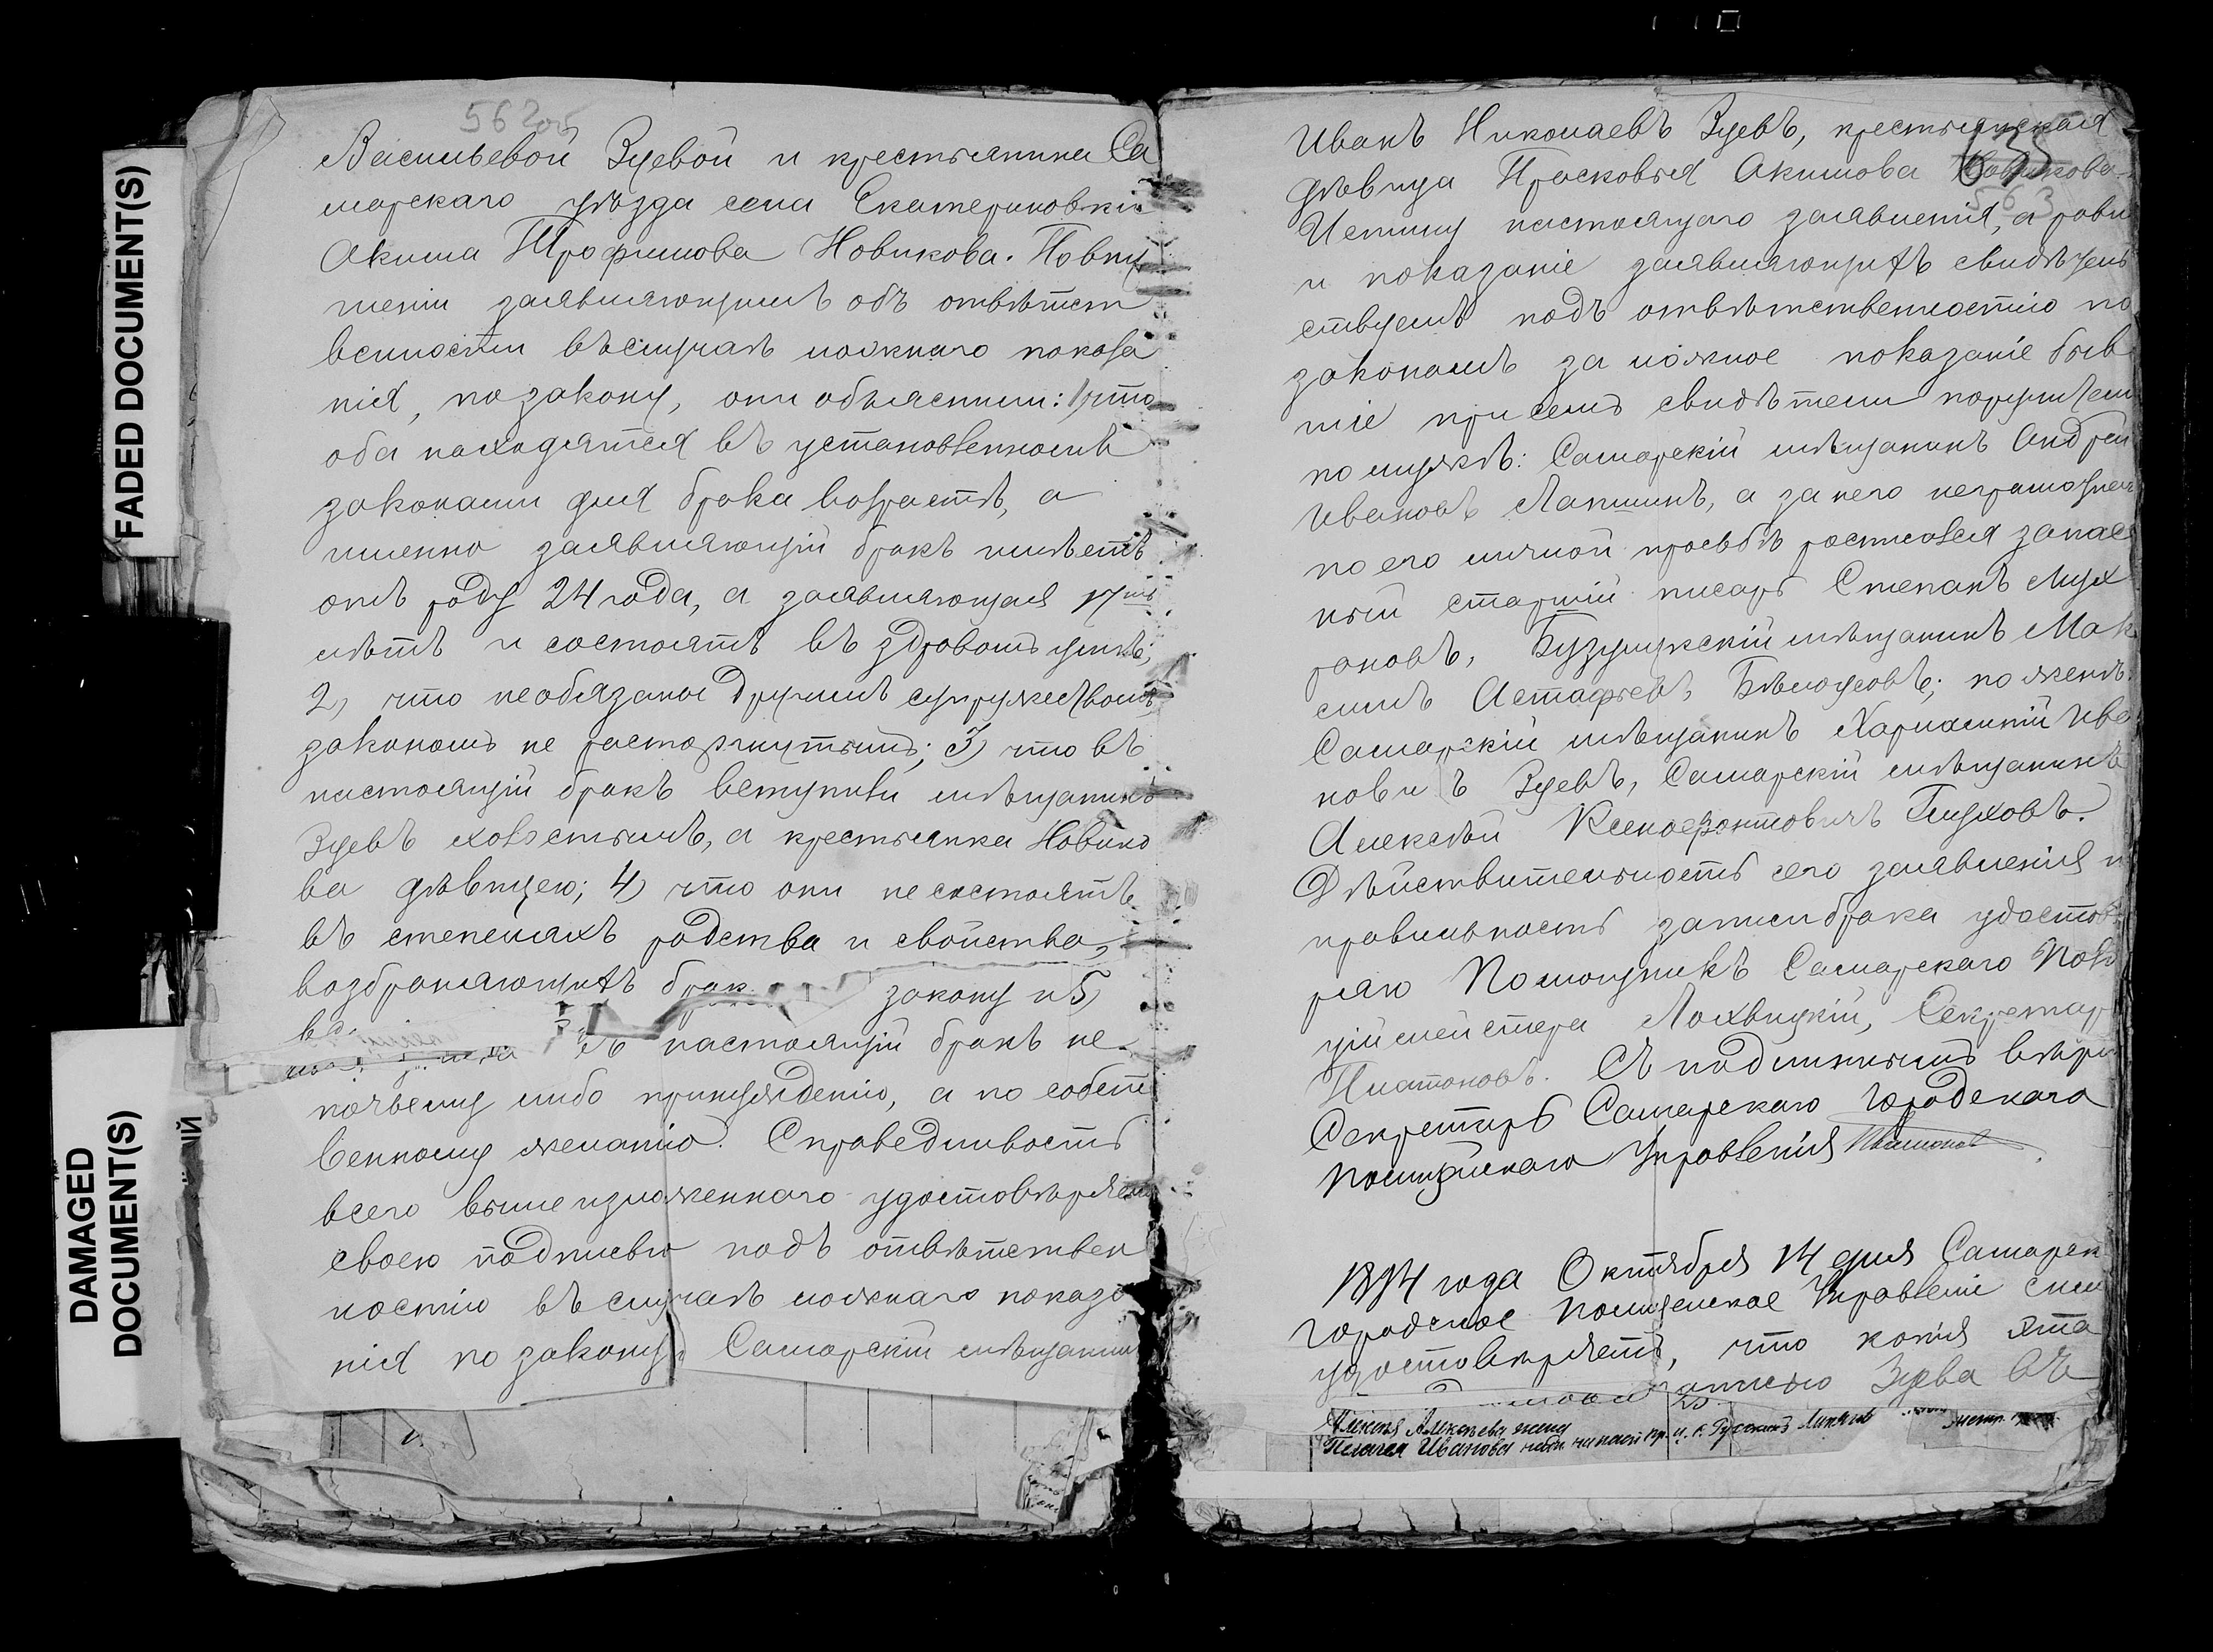 FADED DOCUMENT(S)
DAMAGED
DOCUMENT(S)
562об
Васильевой Зуевой и крестьянина Са
марскаго уѣзда села Екатериновки
Акима Трофимова Новикова. По вну
шеніи заявляющимъ объ отвѣтст
венности въ случаѣ ложнаго показа
нія, по закону, они объяснили: 1, что
оба находятся въ установленномъ
законами для брака возрастѣ, а
именно заявляющій бракъ имѣетъ
отъ роду 24 года, а заявляющая 17ть
лѣтъ и состоятъ въ здравомъ умѣ;
2, что необязаны другимъ супружествомъ,
закономъ не расторгнутымъ; 3, что въ
настоящій бракъ вступили мѣщанинъ
Зуевъ холостымъ, а крестьянка Новико
ва дѣвицею; 4, что они не состоятъ
въ степеняхъ родства и свойства,
возбраняющихъ брак закону и 5,
въ настоящій бракъ не
по чьему либо принужденію, а по собст
венному желанію. Справедливость
всего вышеизложеннаго удостовѣряемъ
своею подписью подъ отвѣтствен
ностію въ случаѣ ложнаго показа
нія по закону. Самарскій мѣщанинъ
Иванъ Николаевъ Зуевъ, крестьянская
дѣвица Прасковья Акимова Новикова
563
Истину настоящаго заявленія, а равно
и показаніе заявляющихъ свидѣтель
ствуемъ подъ отвѣтственностію по
законамъ за ложное показаніе быв
шіе при семъ свидѣтели поручители
по мужѣ: Самарскій мѣщанинъ Андрей
Ивановъ Лапшинъ, а за него неграмотнаго
по его личной просьбѣ росписался запас
ный старшій писарь Степанъ
рановъ, Бузулукскій мѣщанинъ Мак
симъ Астафьевъ Бѣлоусовъ; по женѣ:
Самарскій мѣщанинъ Харлампій Ива
нови ъ Зуевъ, Самарскій мѣщанинъ
Алексѣй Ксенофонтовичъ Глуховъ.
Дѣйствительность сего заявленія и
правильность записи брака удостовѣ
ряю Помощникъ Самарскаго Поли
ціймейстера Лохвицкій, Секретарь
Платоновъ. Съ подлиннымъ вѣрно
Секретарь Самарскаго Городскаго
Полицейскаго Управленія Платоновъ
1894 года Октября 14 дня Самарск
Городское Полицейское Управленіе сим
удостовѣряетъ, что копія эта
записью Зуева въ
Алексѣя Алексѣева жена
Пелагея Иванова